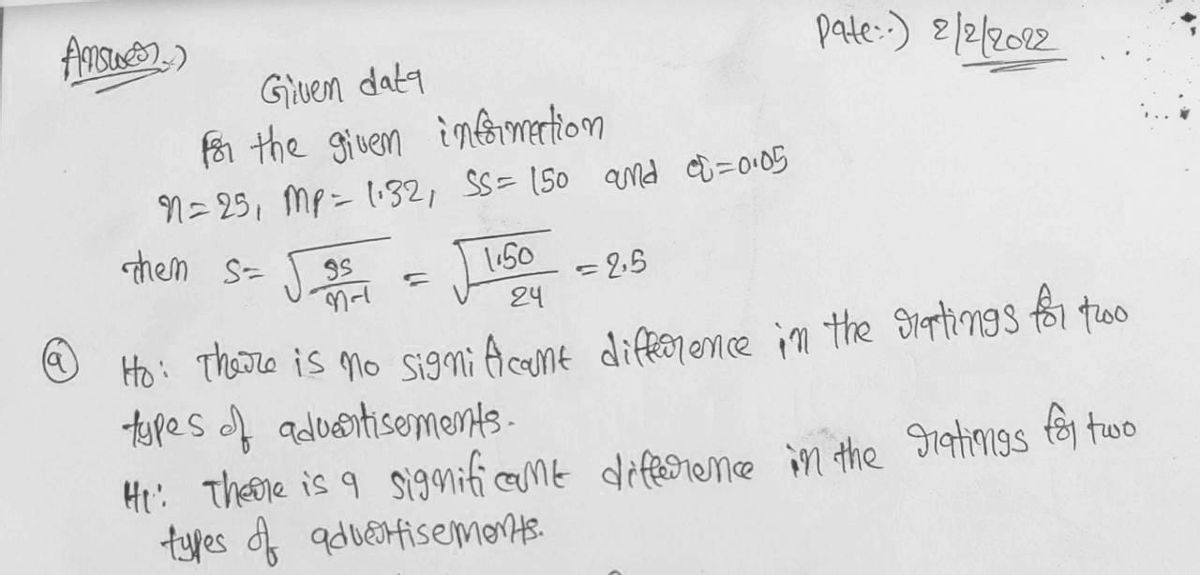 Answer:-)
Date:-) 2/2/2022
Given data
for the given information
n = 25, MD = 1.32, SS = 150 and α = 0.05
then S = √(SS/n-1) = √(1.50/24) = 2.5
(a) H0: There is no significant difference in the ratings for two
types of advertisements.
H1: There is a significant difference in the ratings for two
types of advertisements.